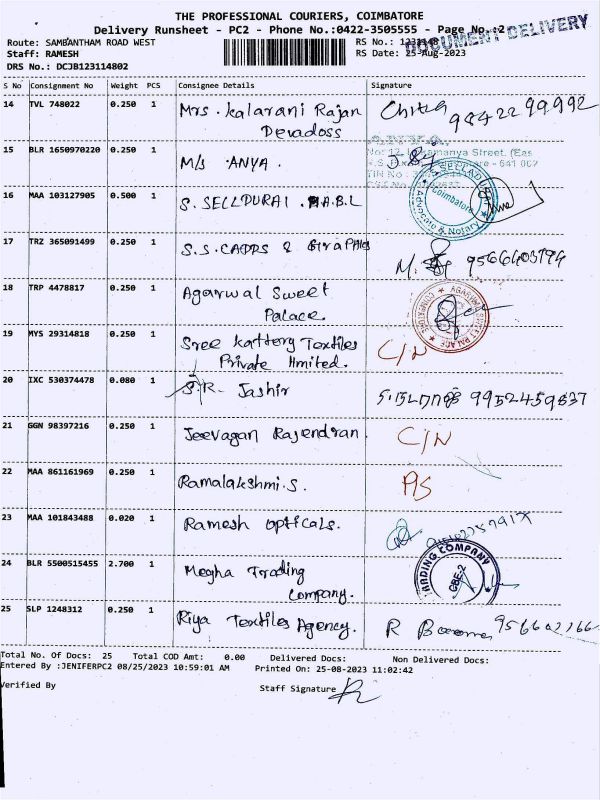 THE PROFESSIONAL COURIERS, COIMBATORE
Delivery Runsheet - PC2 - Phone No.:0422-3505555 - Page No.:2
DOCUMENT DELIVERY
Route: SAMBANTHAM ROAD WEST
RS No.:
Staff: RAMESH
RS Date: 25-Aug-2023
DRS No.: DCJB123114802
S No Consignment No Weight PCS Consignee Details Signature
14 TVL 748022 0.250 1 Mrs. Kalarani Rajan
Devadoss
9842299992
15 BLR 1650970220 0.250 1 M/s ANYA.
16 MAA 103127905 0.500 1 S. SELLDURAI .B.A.B.L
Coimbatore
Advocate & Notary
17 TRZ 365091499 0.250 1 S.S. &
M.
18 TRP 4478817 0.250 1 Agarwal Sweet
Palace.
AGARWAL SWEET PALACE
19 MYS 29314818 0.250 1 Sree Kattery Textiles
Private limited.
C/N
20 IXC 530374478 0.080 1 S.R. Jashir
9952459837
21 GGN 98397216 0.250 1 Jeevagan Rajendran.
C/N
22 MAA 861161969 0.250 1 Ramalakshmi.S.
23 MAA 101843488 0.020 1 Ramesh opticals.
24 BLR 5500515455 2.700 1 Megha Trading
Company.
TRADING COMPANY
CBE-2
25 SLP 1248312 0.250 1 Riya Textiles Agency.
R
Total No. Of Docs: 25 Total COD Amt: 0.00 Delivered Docs: Non Delivered Docs:
Entered By :JENIFERPC2 08/25/2023 10:59:01 AM Printed On: 25-08-2023 11:02:42
Verified By
Staff Signature